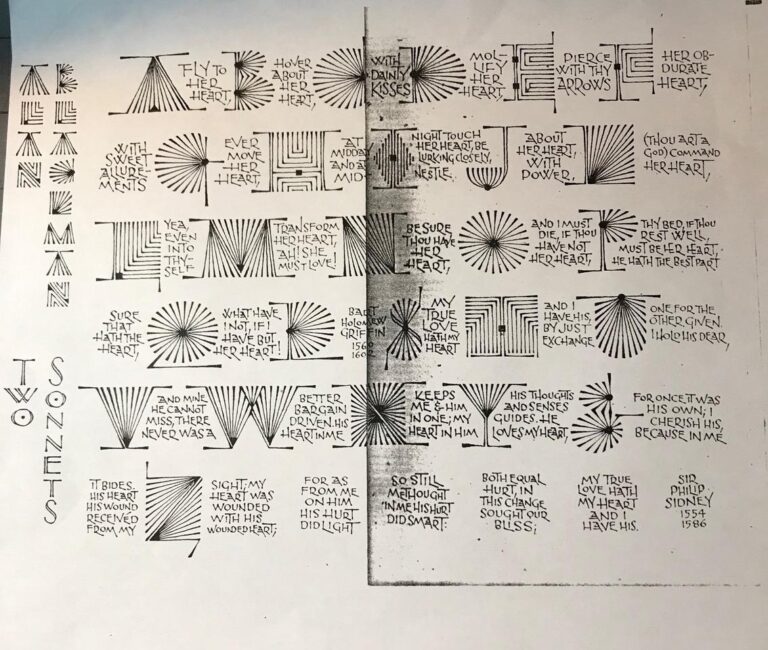 ALAN
BLACKMAN
TWO
SONNETS
A
FLY TO
HER
HEART,
B
HOVER
ABOUT
HER
HEART,
C
WITH
DAINTY
KISSES
D
MOL-
LIFY
HER
HEART,
E
PIERCE
WITH THY
ARROWS
F
HER OB-
DURATE
HEART,
WITH
SWEET
ALLURE-
MENTS
G
EVER
MOVE
HER
HEART,
H
AT
MIDDAY
AND AT
MID-
I
NIGHT TOUCH
HER HEART, BE
LURKING CLOSELY,
NESTLE
J
ABOUT
HER HEART,
WITH
POWER,
K
(THOU ART A
GOD) COMMAND
HER HEART,
L
YEA,
EVEN
INTO
THY-
SELF
M
TRANSFORM
HER HEART,
AH! SHE
MUST LOVE!
N
BE SURE
THOU HAVE
HER
HEART,
O
AND I MUST
DIE, IF THOU
HAVE NOT
HER HEART,
P
THY BED, IF THOU
REST WELL,
MUST BE HER HEART,
HE HATH THE BEST PART
SURE
THAT
HATH THE
HEART,
Q
WHAT HAVE
I NOT, IF I
HAVE BUT
HER HEART!
R
BART
HOLOMEW
GRIFFIN
1560
1602
S
MY
TRUE
LOVE
HATH MY
HEART
T
AND I
HAVE HIS,
BY JUST
EXCHANGE
U
ONE FOR THE
OTHER GIVEN.
I HOLD HIS DEAR,
V
AND MINE
HE CANNOT
MISS, THERE
NEVER WAS A
W
BETTER
BARGAIN
DRIVEN. HIS
HEART IN ME
X
KEEPS
ME & HIM
IN ONE; MY
HEART IN HIM
Y
HIS THOUGHTS
AND SENSES
GUIDES. HE
LOVES MY HEART,
&
FOR ONCE IT WAS
HIS OWN; I
CHERISH HIS,
BECAUSE, IN ME
IT BIDES.
HIS HEART
HIS WOUND
RECEIVED
FROM MY
Z
SIGHT; MY
HEART WAS
WOUNDED
WITH HIS
WOUNDED HEART;
FOR AS
FROM ME
ON HIM
HIS HURT
DID LIGHT
SO STILL
METHOUGHT
IN ME HIS HURT
DID SMART:
BOTH EQUAL
HURT, IN
THIS CHANGE
SOUGHT OUR
BLISS;
MY TRUE
LOVE HATH
MY HEART
AND I
HAVE HIS.
SIR
PHILIP
SIDNEY
1554
1586